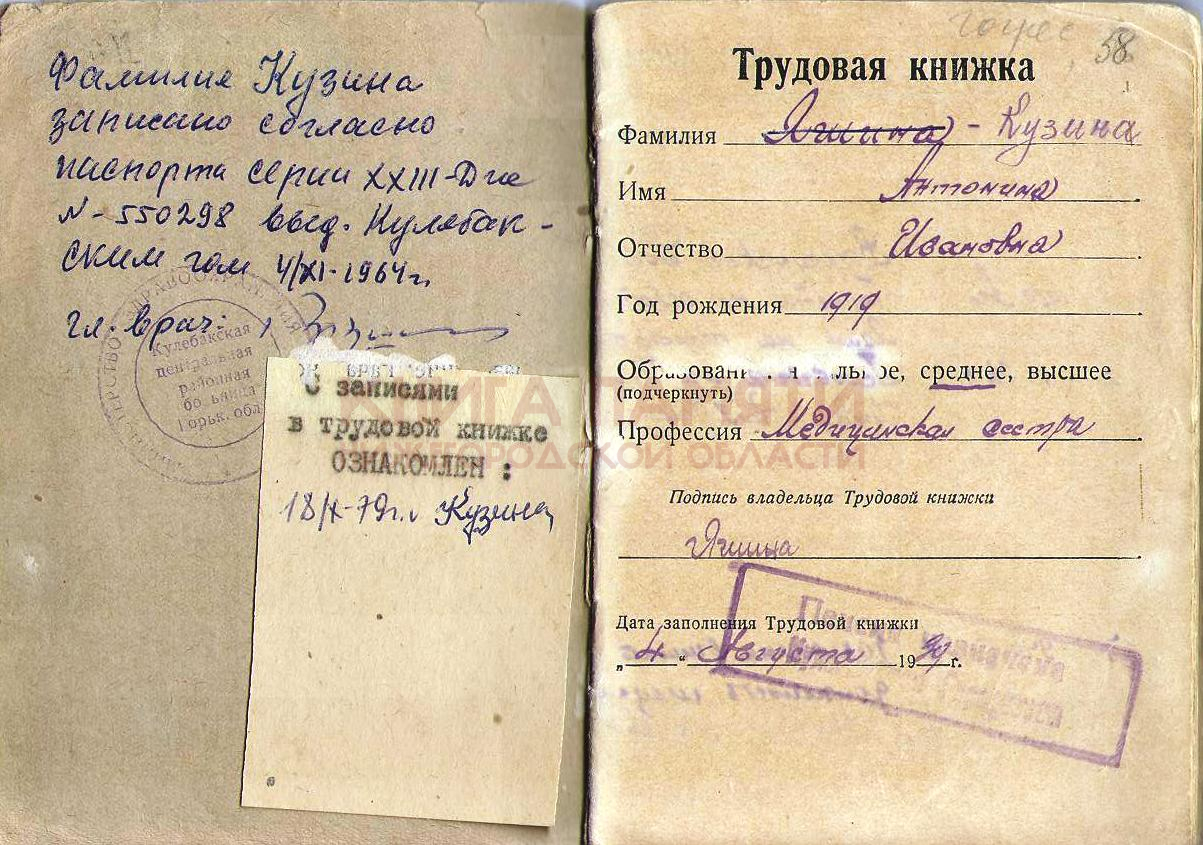 Фамилия Кузина
записано согласно
паспорта серии XXIII-
N-550298 выд. Кулебак-
ским гом 4/XI-1964г.
гл. врач:
Кулебакская
центральная
районная
больница
Горьк. обл
С записями
в трудовой книжке
ОЗНАКОМЛЕН:
18/X-79г. Кузина
58
Трудовая книжка
Фамилия Яшина - Кузина
Имя Антонина
Отчество Ивановна
Год рождения 1919
Образование льное, среднее, высшее
(подчеркнуть)
Профессия Медицинская сестра
Подпись владельца Трудовой книжки
Яшина
Дата заполнения Трудовой книжки
„4“ Августа 1939г.
КНИГА ПАМЯТИ
ОБЛАСТИ